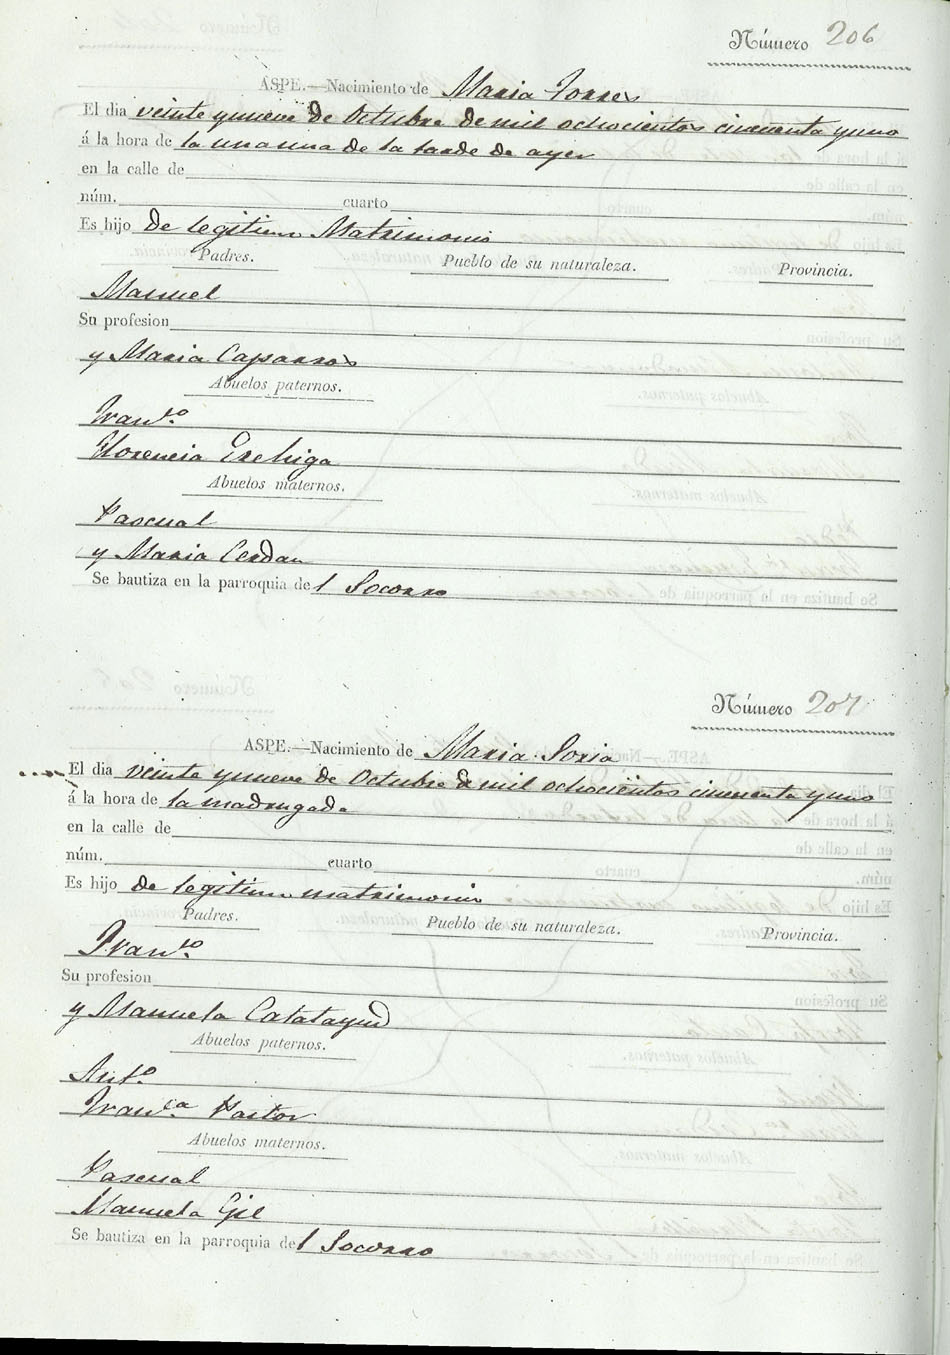 Número 206
ASPE.—Nacimiento de Maria Torres
El dia veinte y nueve de Octubre de mil ochocientos cincuenta y uno
á la hora de la una de la tarde de ayer
en la calle de
núm. cuarto
Es hijo de legitimo Matrimonio
Padres. Pueblo de su naturaleza. Provincia.
Manuel
Su profesion
y Maria Caparros
Abuelos paternos.
Franco.
Florencia
Abuelos maternos.
Pascual
y Maria Cerdan
Se bautiza en la parroquia del Socorro
Número 207
ASPE.—Nacimiento de Maria Soria
El dia veinte y nueve de Octubre de mil ochocientos cincuenta y uno
á la hora de la madrugada
en la calle de
núm. cuarto
Es hijo de legitimo matrimonio
Padres. Pueblo de su naturaleza. Provincia.
Franco.
Su profesion
y Manuela Calatayud
Abuelos paternos.
Anto.
Franca. Pastor
Abuelos maternos.
Pascual
Manuela Gil
Se bautiza en la parroquia del Socorro